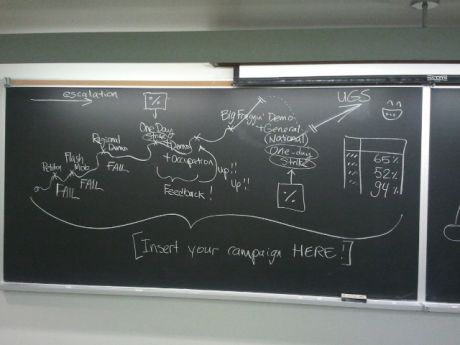 escalation
%
Big Friggin' Demo
+ General
(National)
One-day
Strike
UGS
One-Day
Strike
+ Demo
+ Occupation
Regional
Demo
FAIL
Flash
Mob
FAIL
Petition
FAIL
Feedback!
up!!
up!!
%
65%
52%
94%
[Insert your campaign HERE!]